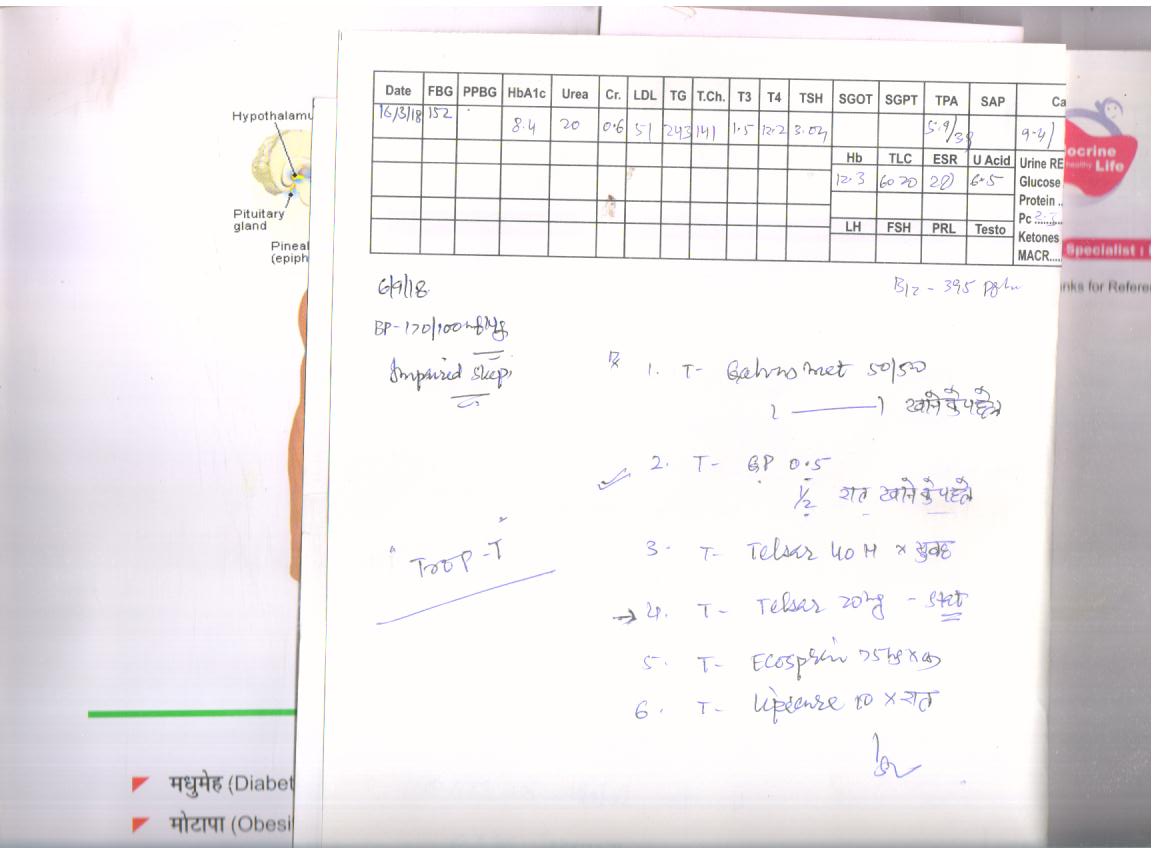 Hypothalamu
Pituitary
gland
Pineal
(epiph
Date FBG PPBG HbA1c Urea Cr. LDL TG T.Ch. T3 T4 TSH SGOT SGPT TPA SAP Ca
16/3/18 152 8.4 20 0.6 51 243 141 1.5 12.2 3.04 5.9/38 9.4/
Hb TLC ESR U Acid Urine RE
12.3 6020 20 6.5 Glucose
Protein ..
LH FSH PRL Testo Pc
Ketones
MACR....
ocrine
healthy Life
Specialist :
nks for Refere
6/9/18
B12 - 395
BP-170/100 mmHg
Impaired Sleep
Rx 1. T- Galvus met 50/500
1 —— 1 खाने के पहले
2. T- GP 0.5
1/2 रात खाने के पहले
Trop-T
3. T- Telsar 40 H x सुबह
→ 4. T- Telsar 20mg - stat
5. T- Ecosprin 75mg x
6. T- Lipicure 10 x रात
मधुमेह (Diabet
मोटापा (Obesi